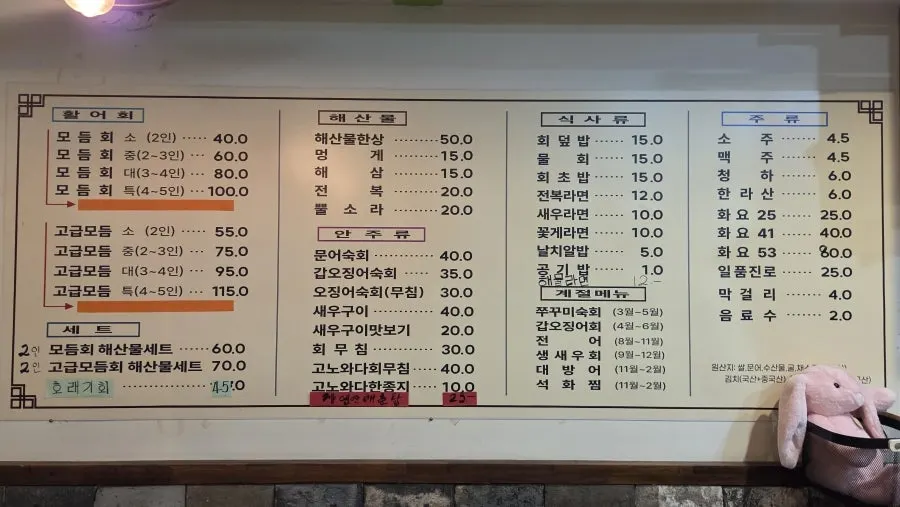 활어회
모듬회 소 (2인) ····· 40.0
모듬회 중(2~3인) ··· 60.0
모듬회 대(3~4인) ··· 80.0
모듬회 특(4~5인) ···100.0
고급모듬 소 (2인) ····· 55.0
고급모듬 중(2~3인) ··· 75.0
고급모듬 대(3~4인) ··· 95.0
고급모듬 특(4~5인) ··· 115.0
세트
2인 모듬회 해산물세트 ····· 60.0
2인 고급모듬회 해산물세트 70.0
호래기회 45.0
해산물
해산물한상 ········50.0
멍게 ········15.0
해삼 ········15.0
전복 ········20.0
뿔소라 ········20.0
안주류
문어숙회 ·········· 40.0
갑오징어숙회 ····· 35.0
오징어숙회(무침) 30.0
새우구이 ·········· 40.0
새우구이맛보기 20.0
회무침 ·········· 30.0
고노와다회무침····· 40.0
고노와다한종지···· 10.0
25-
식사류
회덮밥 ······ 15.0
물회 ······ 15.0
회초밥 ······ 15.0
전복라면 ······ 12.0
새우라면 ······ 10.0
꽃게라면 ······ 10.0
날치알밥 ······ 5.0
공기밥 ······ 1.0
해물라면 12-
계절메뉴
쭈꾸미숙회 (3월~5월)
갑오징어회 (4월~6월)
전어 (8월~11월)
생새우회 (9월~12월)
대방어 (11월~2월)
석화찜 (11월~2월)
주류
소주 ······ 4.5
맥주 ······ 4.5
청하 ······ 6.0
한라산 ······ 6.0
화요 25 ······ 25.0
화요 41 ······ 40.0
화요 53 ······ 80.0
일품진로 ······ 25.0
막걸리 ······ 4.0
음료수 ······ 2.0
원산지: 쌀,문어,수산물,굴,채소
김치(국산+중국산)